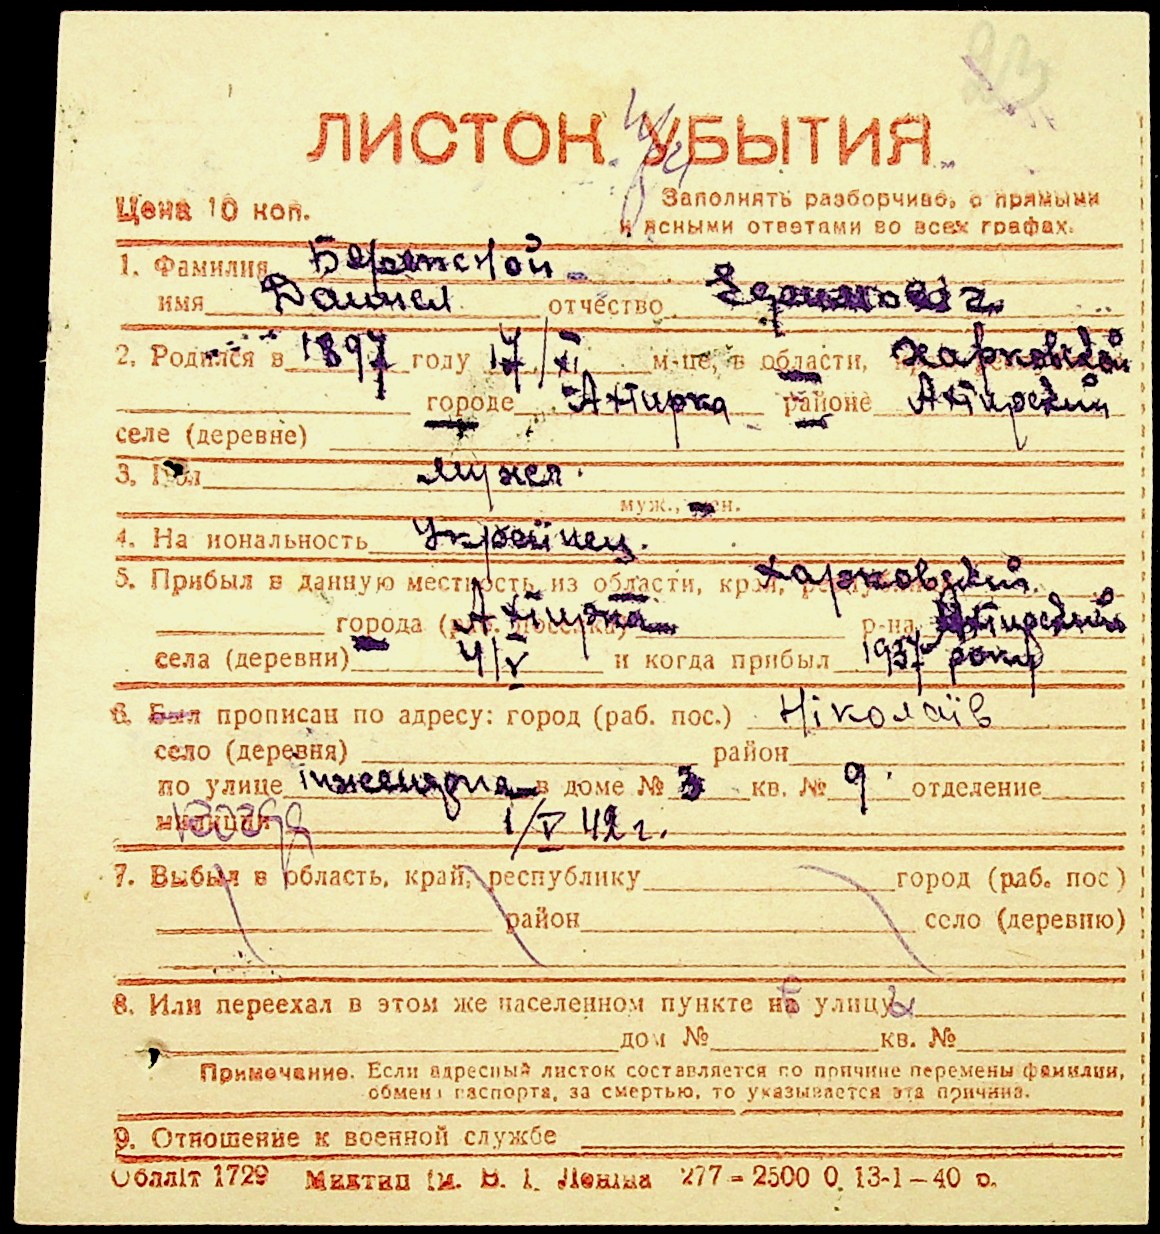 ЛИСТОК УБЫТИЯ
Цена 10 коп.
Заполнять разборчиво, с прямыми
и ясными ответами во всех графах.
1. Фамилия
имя Даниел отчество
2. Родился в 1897 году 17/XI м-це, в области, Харковской
городе Ахтирка районе Ахтирский
селе (деревне)
3. Пол мужел
муж., жен.
4. Национальность Украйинец.
5. Прибыл в данную местность из области, край, республики Харковский
города (раб. поселка) Ахтирка р-на Ахтирский
села (деревни) 4/V и когда прибыл 1937 року
6. Был прописан по адресу: город (раб. пос.) Ніколаїв
село (деревня) район
по улице інженярна в доме № 3 кв. № 9. отделение
милиции 1/V 42 г.
7. Выбыл в область, край, республику город (раб. пос)
район село (деревню)
8. Или переехал в этом же населенном пункте на улицу
дом № кв. №
Примечание. Если адресный листок составляется по причине перемены фамилии,
обмена паспорта, за смертью, то указывается эта причина.
9. Отношение к военной службе
Обллiт 1729 Миктип iм. В. I. Ленiна 277 – 2500 0. 13-1–40 р.